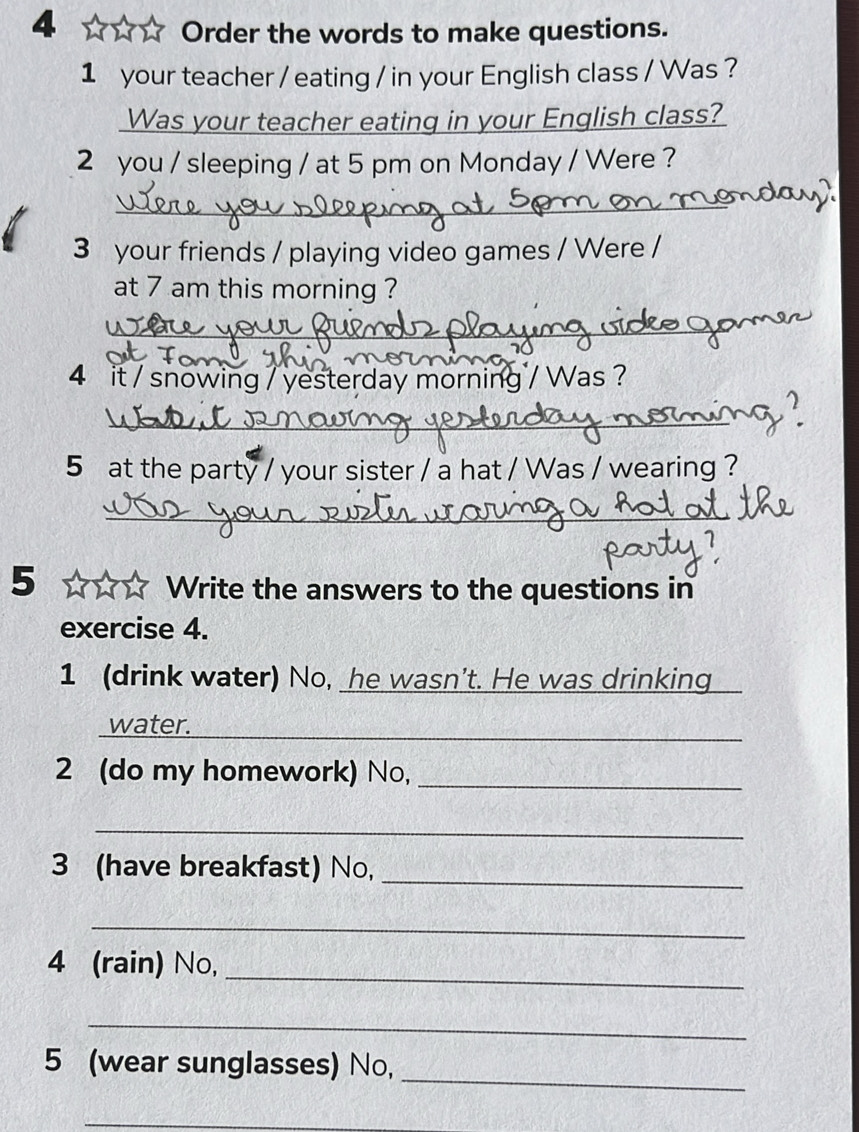 4 ☆☆☆ Order the words to make questions.
1 your teacher / eating / in your English class / Was ?
Was your teacher eating in your English class?
2 you / sleeping / at 5 pm on Monday / Were ?
Were you sleeping at 5pm on monday?
3 your friends / playing video games / Were /
at 7 am this morning ?
were your friends playing video games
at 7am this morning?
4 it / snowing / yesterday morning / Was ?
Was it snowing yesterday morning?
5 at the party / your sister / a hat / Was / wearing ?
was your sister waring a hat at the
party?
5 ☆☆☆ Write the answers to the questions in
exercise 4.
1 (drink water) No, he wasn't. He was drinking
water.
2 (do my homework) No,
3 (have breakfast) No,
4 (rain) No,
5 (wear sunglasses) No,